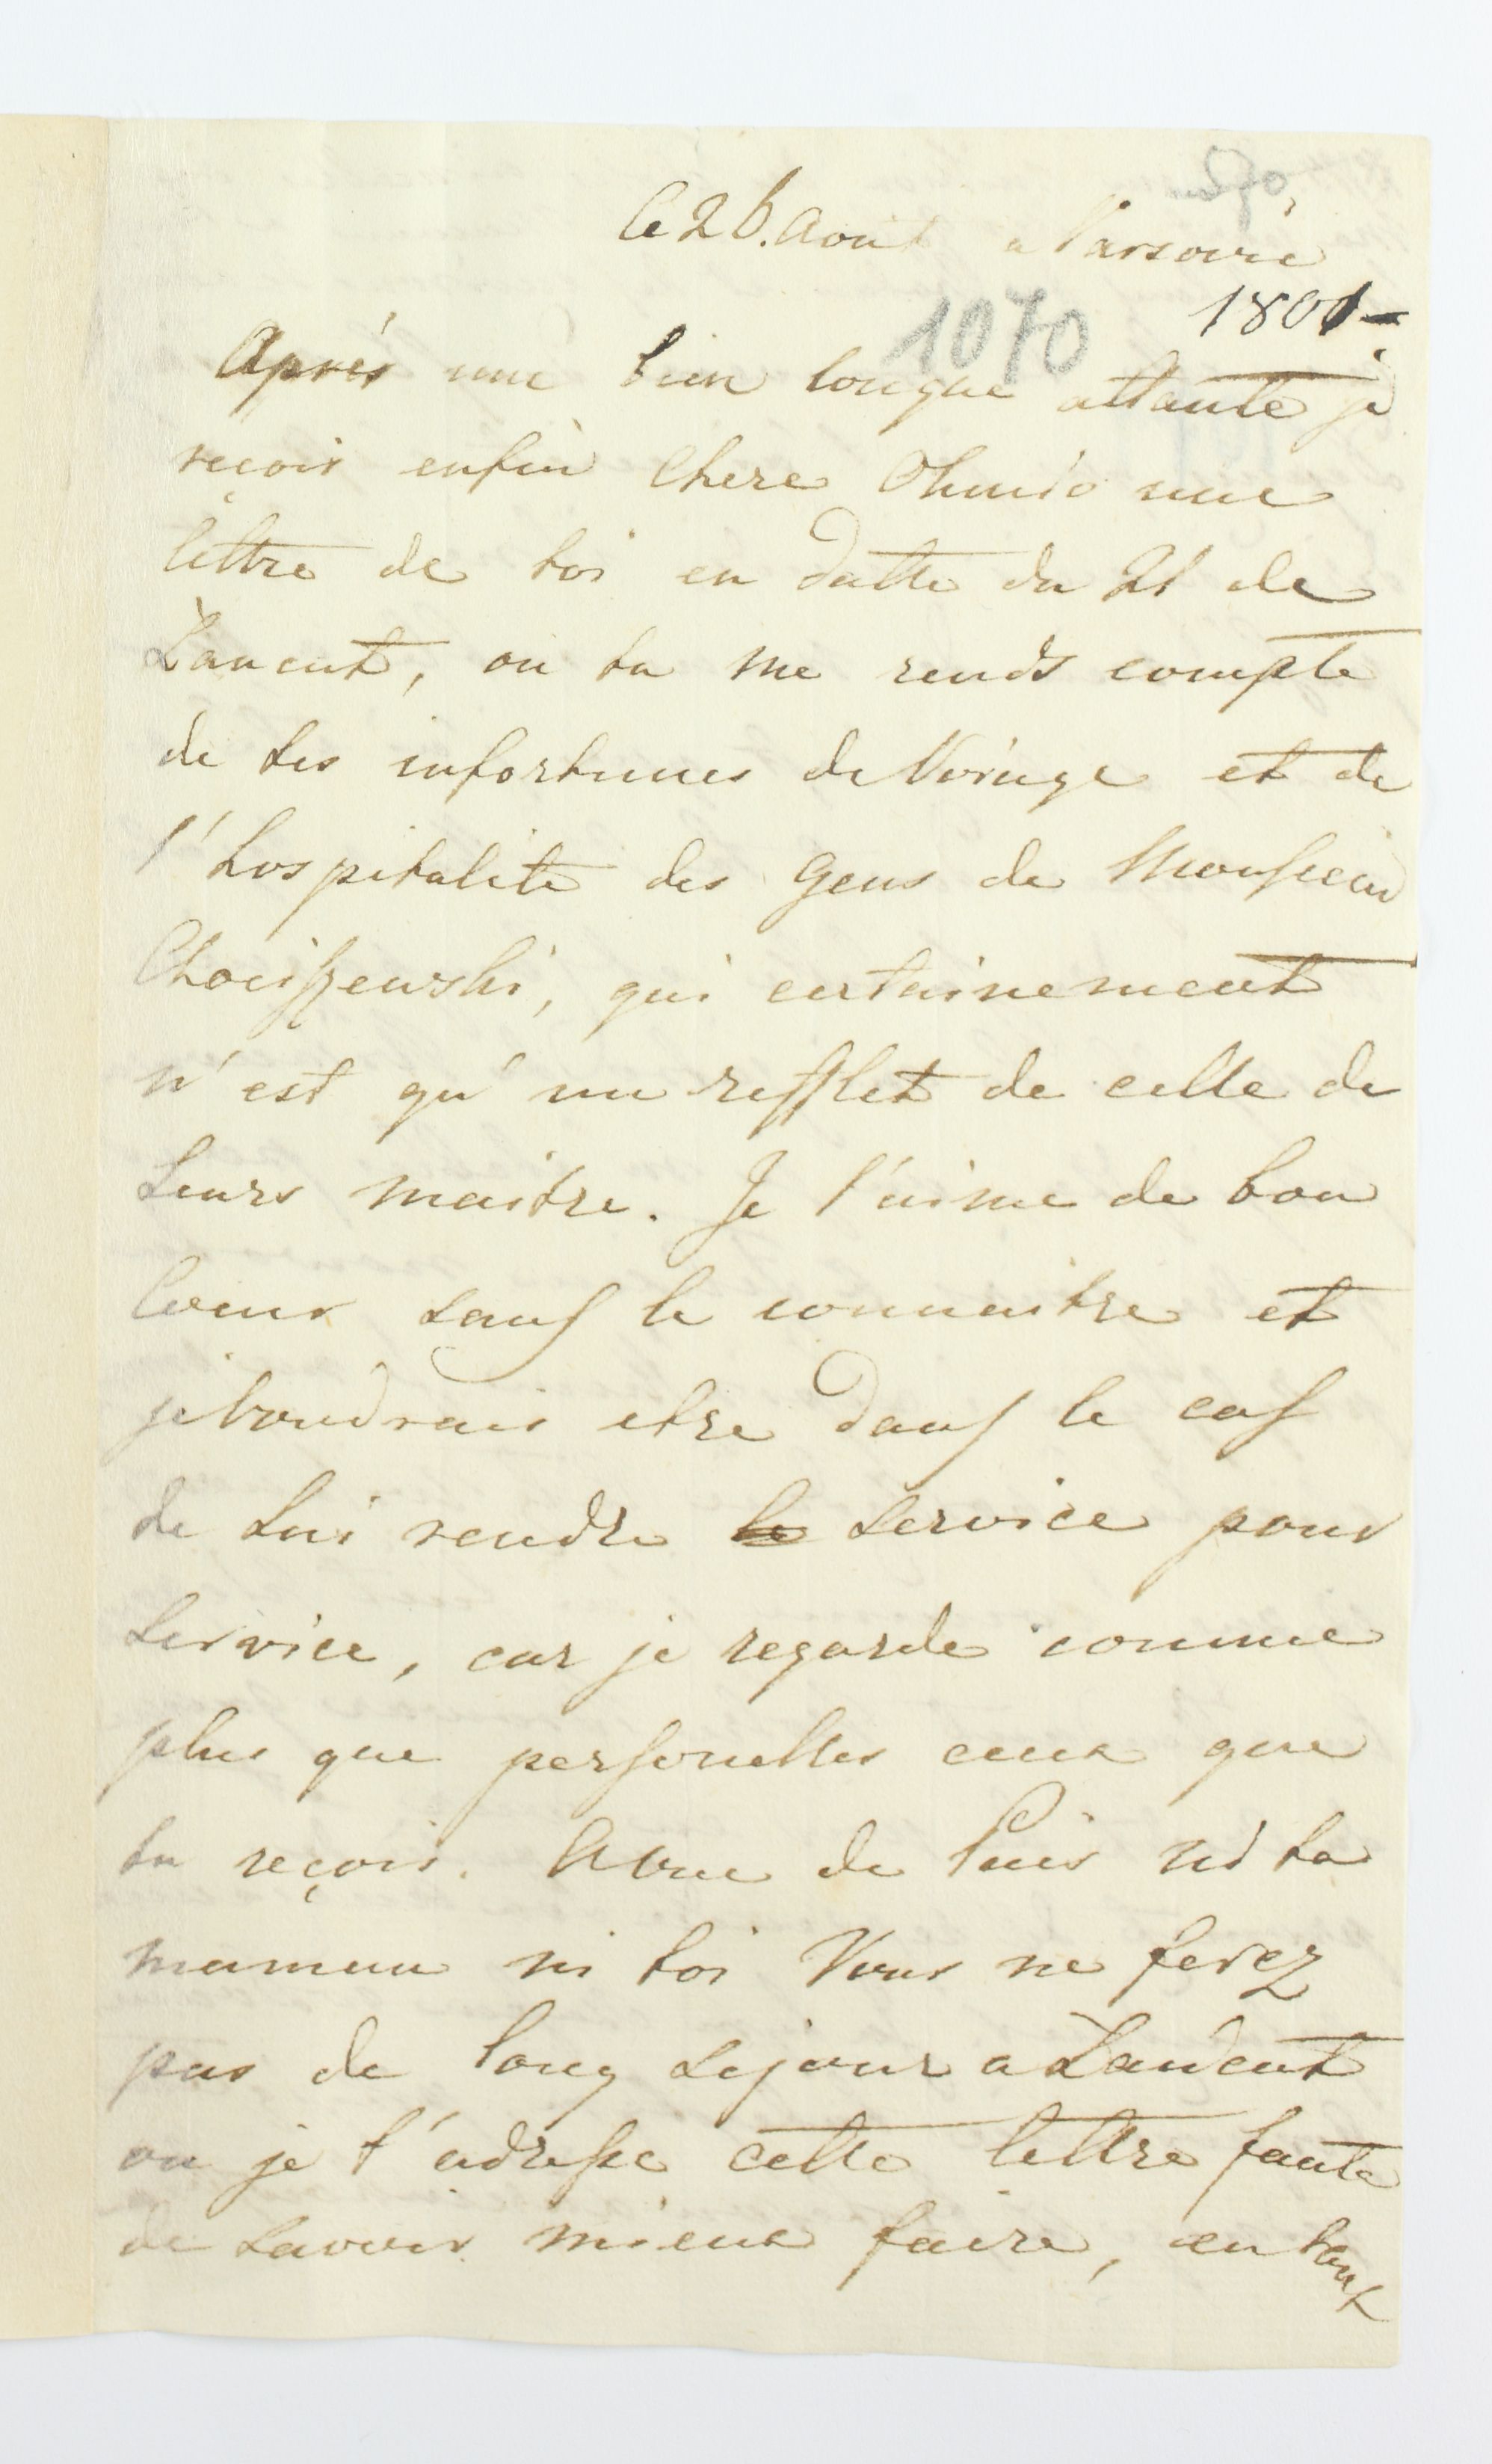 le 26. Août a Varsovie
1801
1070
Après une bien longue attante je
reçois enfin Chere une
lettre de toi en datte du 21 de
Lancut, ou tu me rends compte
de tes infortunes de Voiage et de
l'hospitalite des gens de Monsieur
qui certainement
n'est qu'un refflet de celle de
leurs maitre. Je l'aime de bon
Coeur sans le connaitre et
je voudrais etre dans le cas
de lui rendre service pour
service, car je regarde comme
plus que personelles ceux que
tu reçois. de Puis ni ta
maman ni toi Vous ne ferez
pas de long sejour a Landcut
ou je t'adresse cette lettre faute
de savoir mieux faire, en tout